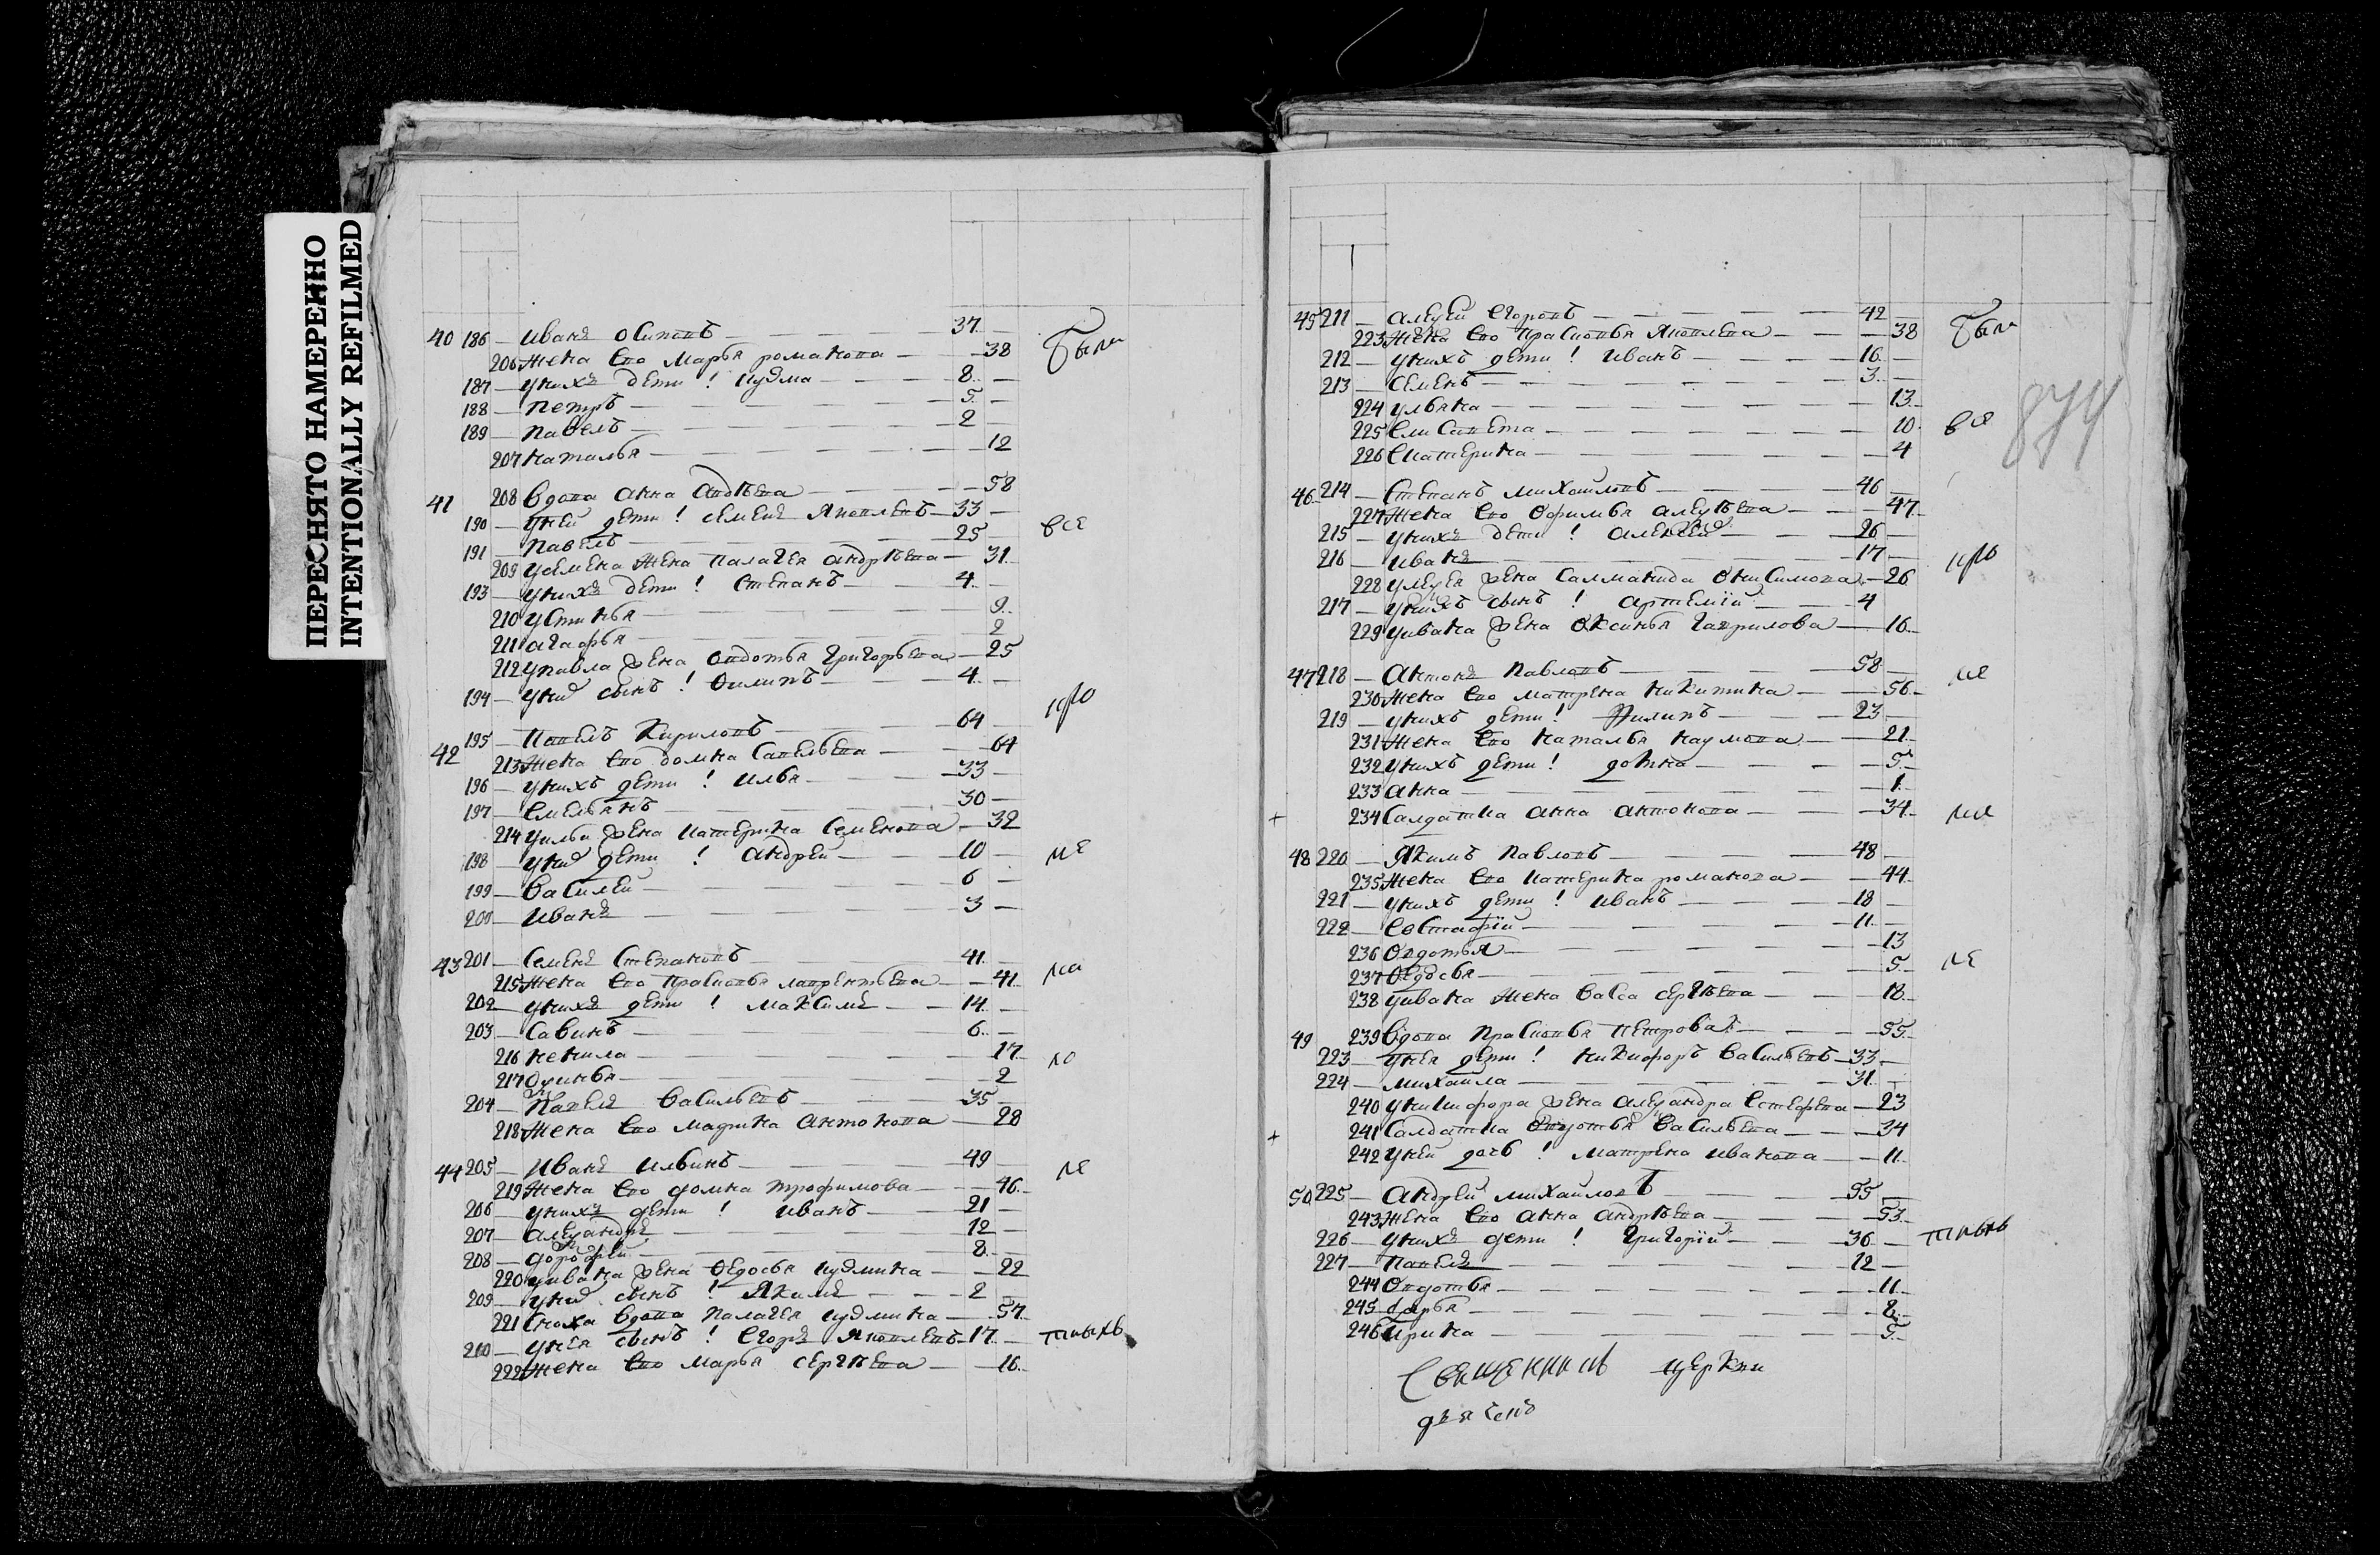 ПЕРЕСНЯТО НАМЕРЕННО
INTENTIONALLY REFILMED
40 186 — Иванъ Осиповъ — 37 —
206 Жена Ево Марья романова — 38
Были
187 — унихъ дети ! Кузма — 8 —
188 — Петръ — 5 —
189 — Павелъ — 2
207 Наталья — 12
41 208 Вдова Анна Авдѣева — 58
190 — уней дети ! Семенъ Яковлевъ — 33 —
191 — Павелъ — 25 —
все
209 уСемена Жена Палагея Андрѣева — 31
193 — унихъ дети ! Степанъ — 4 —
210 Устинья — 9
211 Агафья — 2
212 уПавла Жена Овдотья Григорьева — 25
194 — унид сынъ ! Филипъ — 4 —
42 195 — Павелъ Кириловъ — 64 —
213 Жена Ево домна Савельева — 64
196 — унихъ дети ! Илья — 33 —
197 — Емельянъ — 30 —
214 уИльи Жена Катерина Семенова — 32
198 — унид дети ! Андрей — 10 —
199 — Василей — 6 —
200 — Иванъ — 3 —
43 201 — Семенъ Степановъ — 41
215 Жена Ево Прасковья лаврентьева — 41
202 — унихъ дети ! Максимъ — 14 —
203 — Савинъ — 6 —
216 Ненила — 17
217 — 2
204 — Павелъ Васильевъ — 35 —
218 Жена Ево Марина Антонова — 28
44 205 — Иванъ Ильинъ — 49
219 Жена Ево домна трофимова — 46
206 — унихъ дети ! Иванъ — 21 —
207 — Алеѯандръ — 12 —
208 — дорофей — 8 —
220 уИвана Жена Федосья Кузмина — 22
209 — унид сынъ ! Якимъ — 2 —
221 Сноха Вдова Палагея Кузмина — 57
210 — унея сынъ ! Егоръ Яковлевъ — 17 —
222 Жена Ево Марья Сергѣева — 16
45 211 — Алеѯѣй Егоровъ — 42
223 Жена Ево Прасковья Яковлева — 38
Были
212 — унихъ дети ! Иванъ — 16 —
213 — Семенъ — 3 —
224 Ульяна — 13
225 Елисавета — 10
226 Екатерина — 4
874
46 214 — Степанъ Михайловъ — 46 —
227 Жена Ево Офимья Алеѯѣева — 47
215 — унихъ дети ! Алексей — 26 —
216 — Иванъ — 17 —
228 уАлеѯея Жена Саламанида Онисимова — 26
217 — унихъ сынъ ! Артемїй — 4
229 уИвана Жена Оксинья Гаврилова — 16
47 218 — Антонъ Павловъ — 58 —
230 Жена Ево матрена Никитина — 56
219 — унихъ дети ! Филипъ — 23 —
231 Жена Ево Наталья Наумова — 21
232 унихъ дети ! домна — 5
233 Анна — 1
+ 234 Салдатка Анна Антонова — 34
48 220 — Якимъ Павловъ — 48 —
235 Жена Ево Катерина романова — 44
221 — унихъ дети ! Иванъ — 18 —
222 — Евстафїй — 11 —
236 Овдотья — 13
237 Федосья — 5
238 уИвана Жена Васа Сергѣева — 18
49 239 Вдова Прасковья Петрова — 55
223 — унея дети ! Никифоръ Васильевъ — 33 —
224 — Михаила — 31 —
240 уНикифора Жена Алеѯандра — 23
+ 241 Салдатка Овдотья Васильева — 34
242 уней дочь ! Матрена Иванова — 11
50 225 — Андрей Михайловъ — 55 —
243 Жена Ево Анна Андрѣева — 53
226 — унихъ дети ! Григорїй — 36 —
227 — Павелъ — 12 —
244 Овдотья — 11
245 дарья — 8
246 Ирина — 5
Священникъ церкви